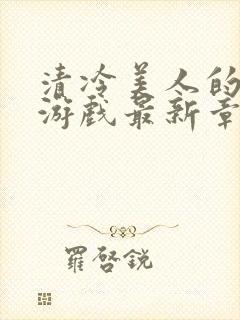 清冷美人的
游戏最新章
羅啓銳